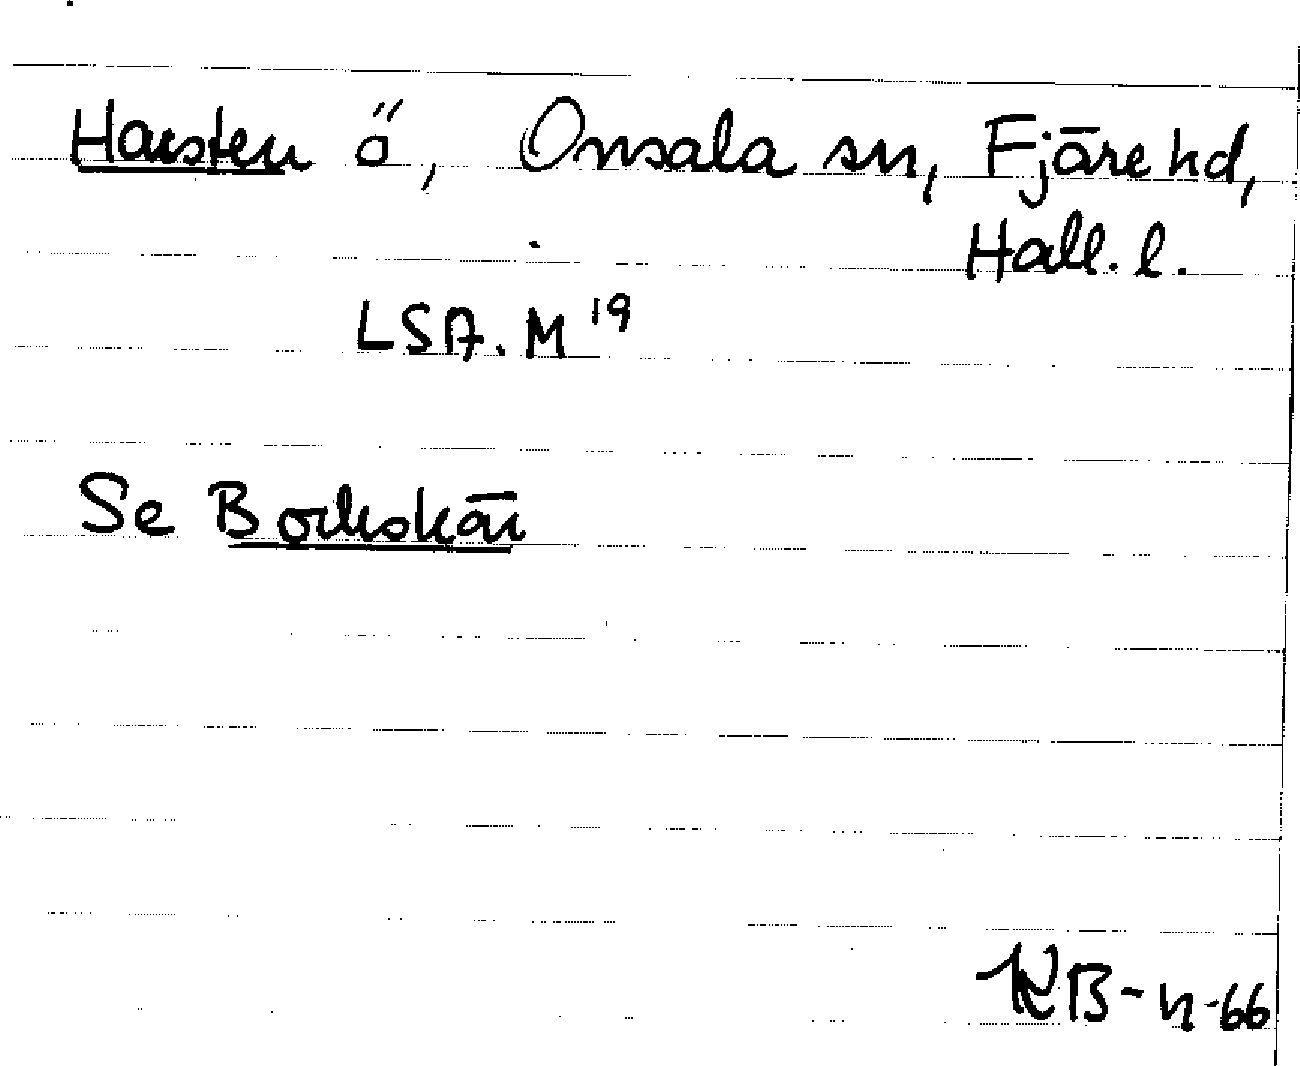 Harsten ö, Onsala sn, Fjäre hd,
Hall. l.
LSA. M 19
Se Bockskär
KB-n-66